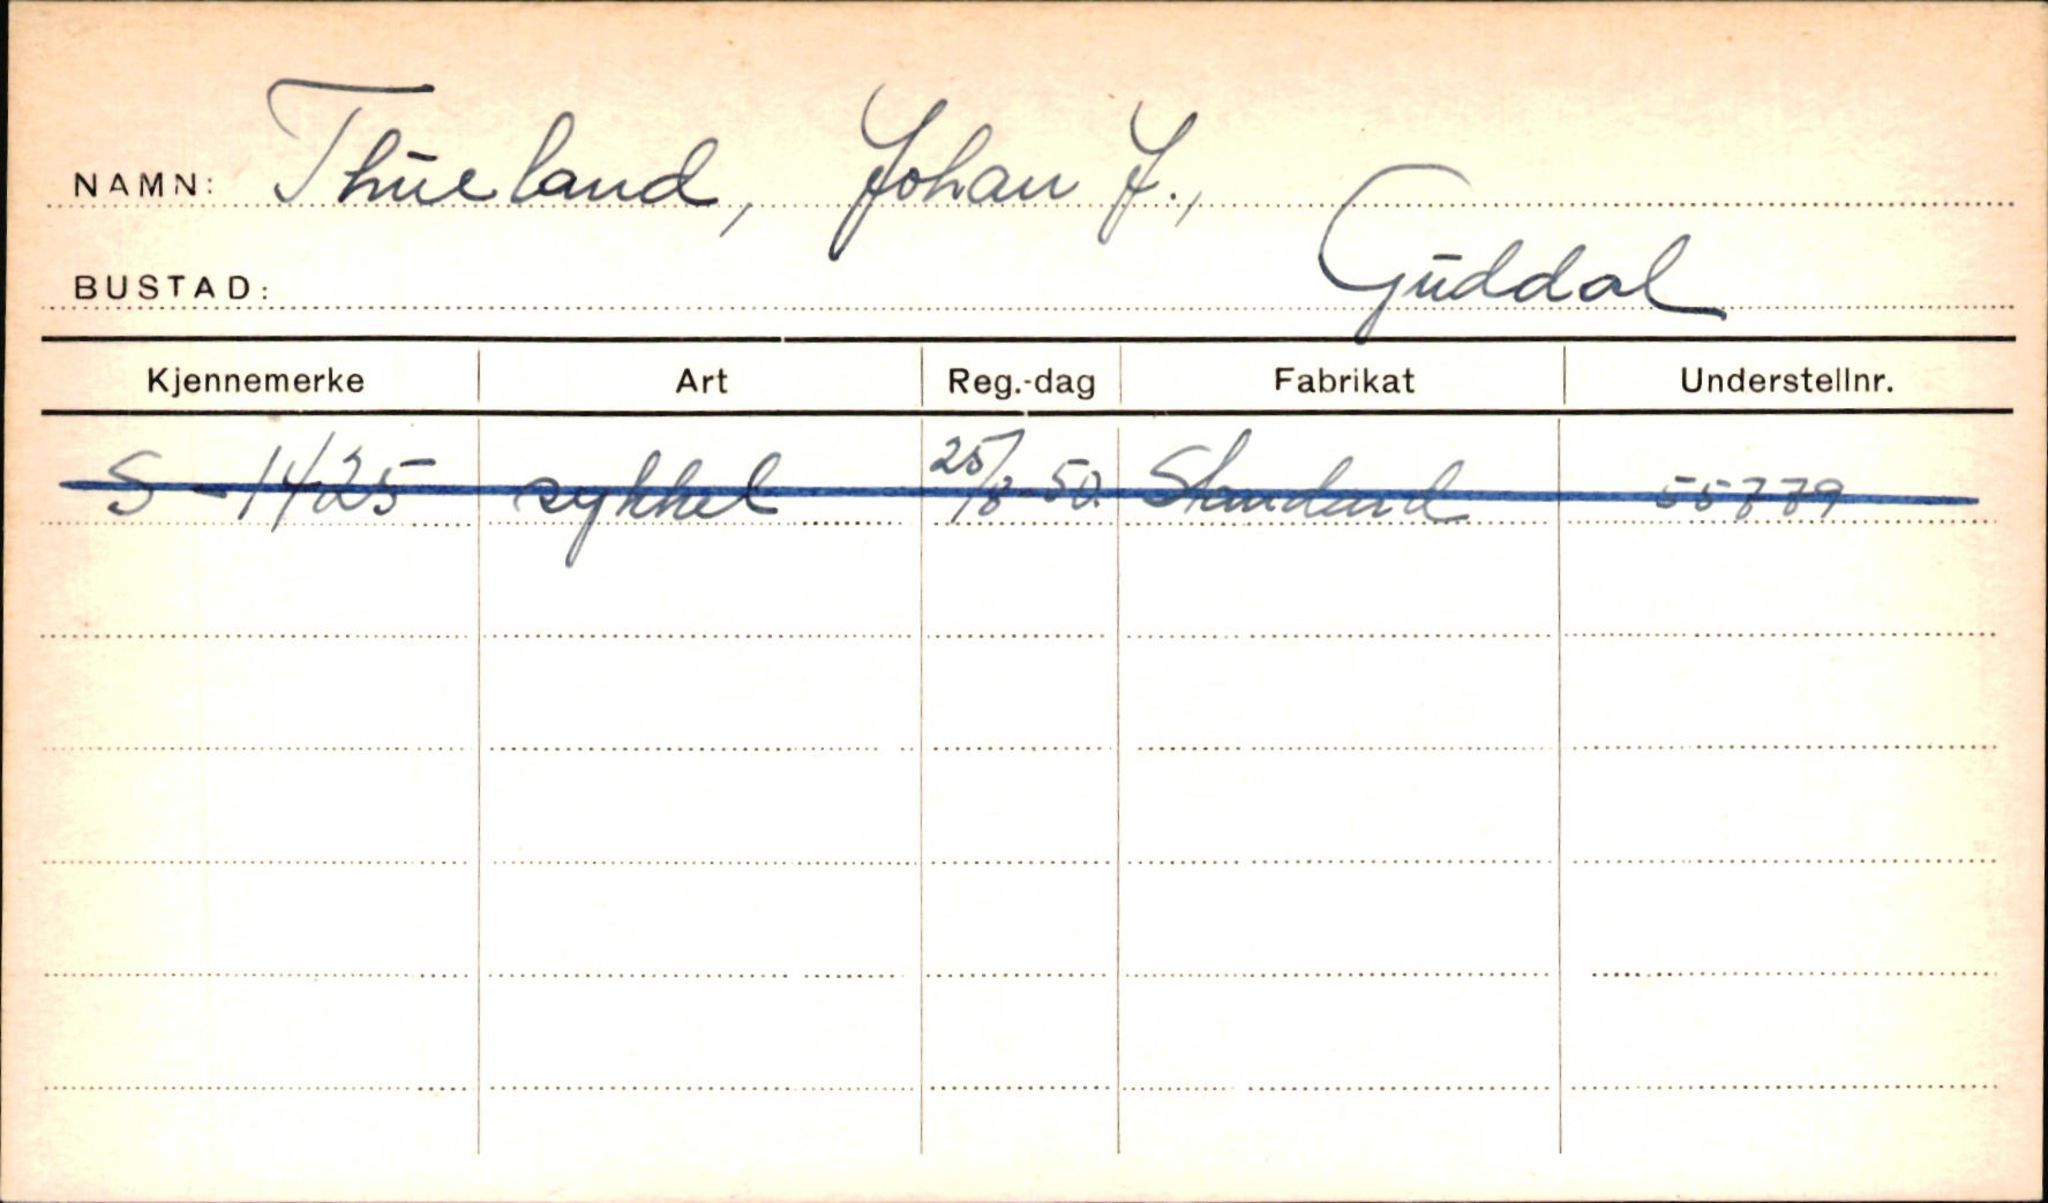 NAMN: Thueland, Johan J.,
BUSTAD: Guddal
Kjennemerke Art Reg.-dag Fabrikat Understellnr.
S-1425 sykkel 25/8-50. Standard 55779